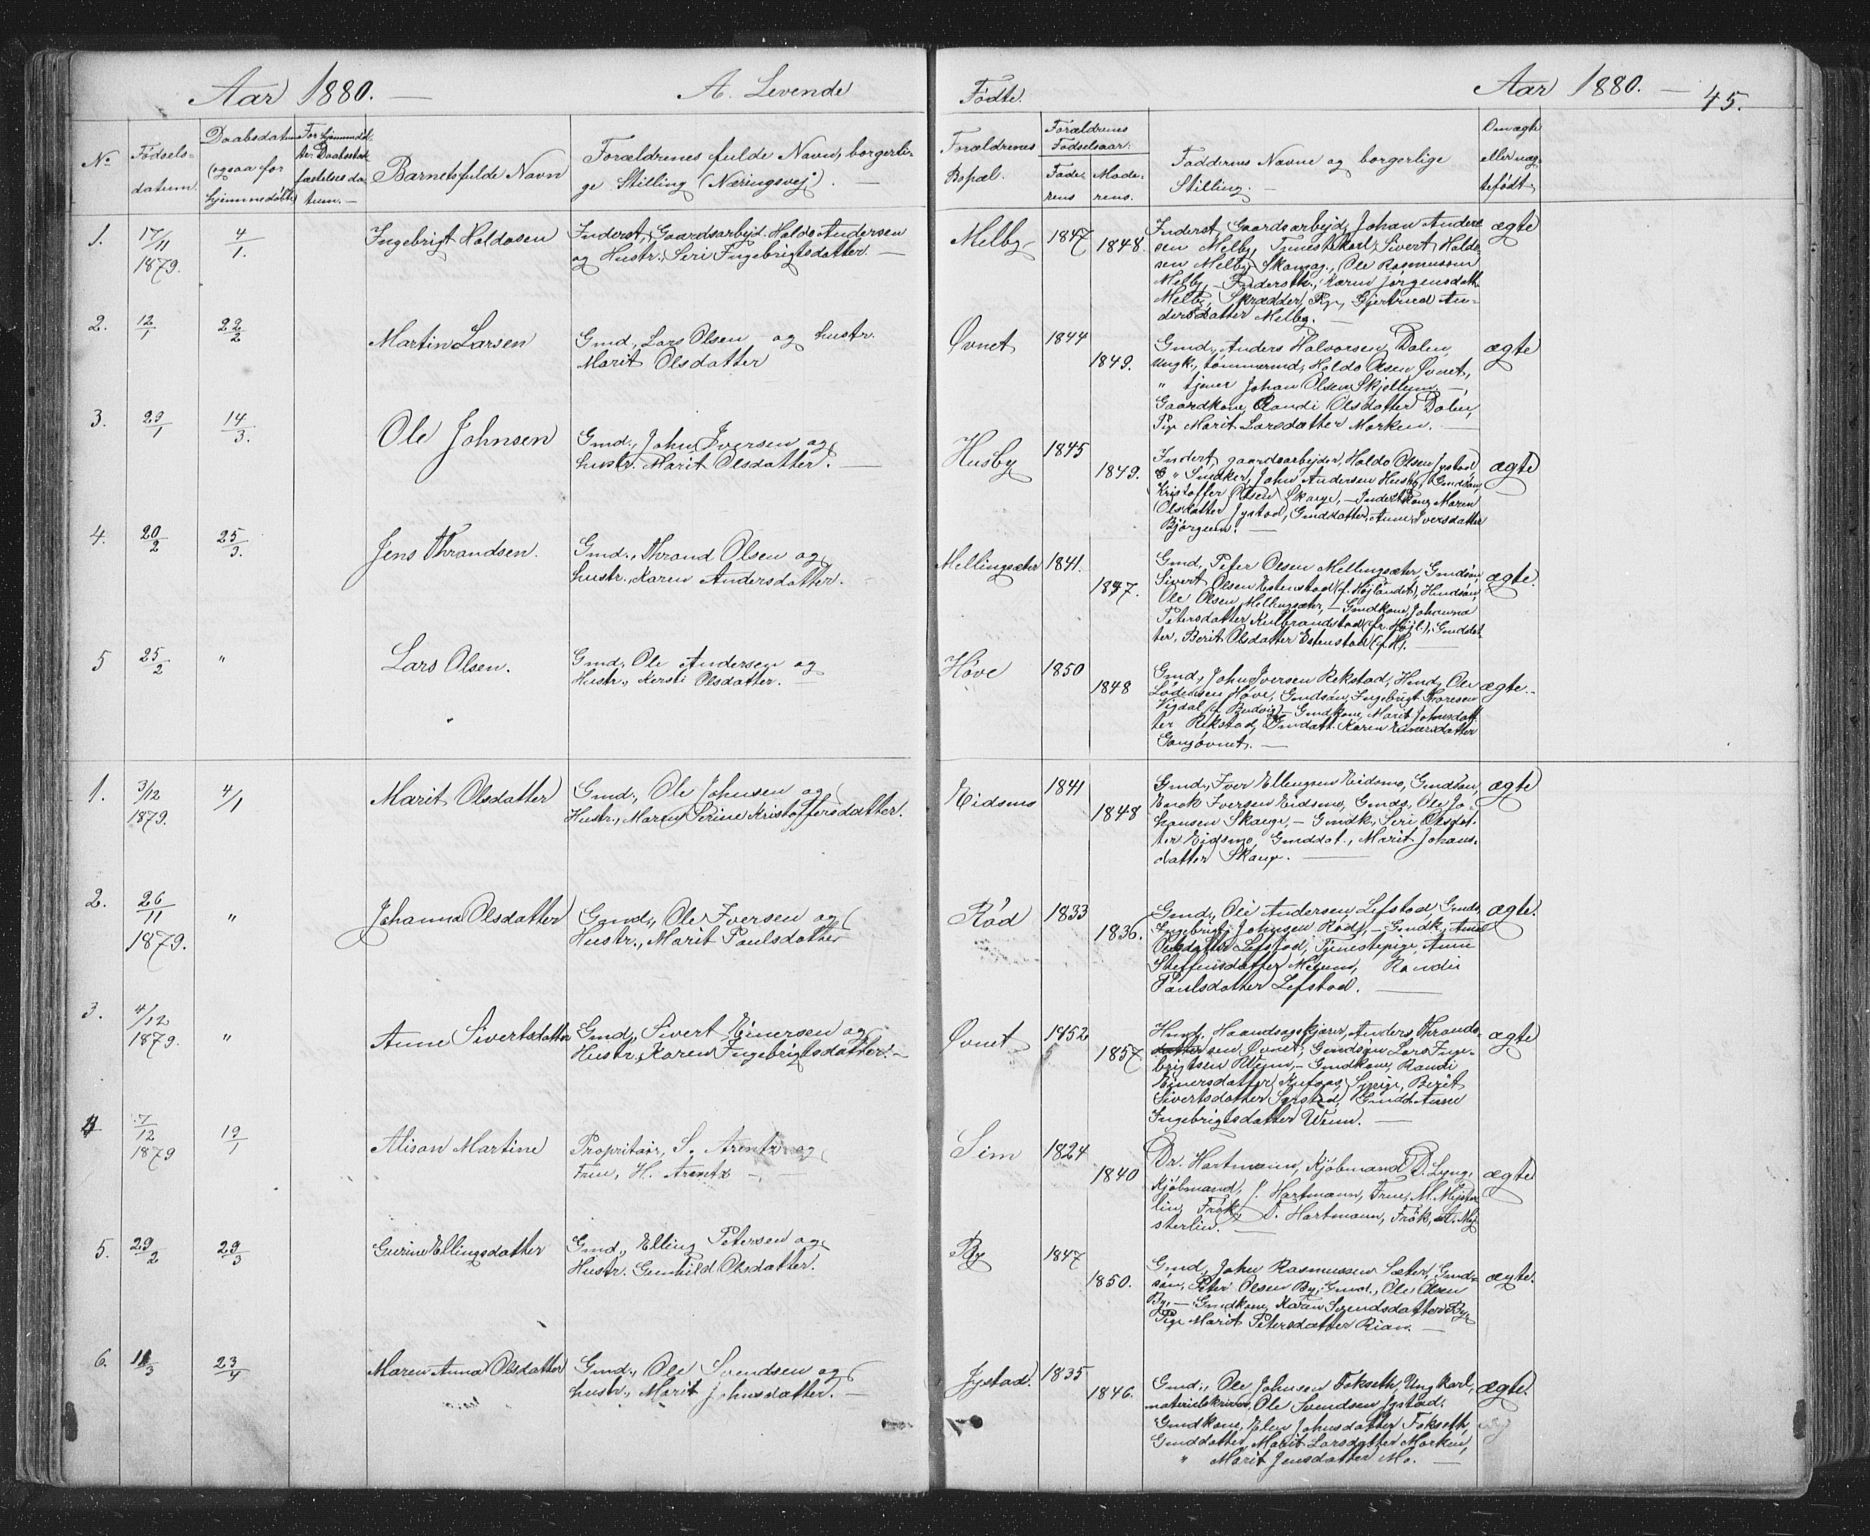 Aar 1880. — A. Levende Fødte. Aar 1880. — 45.
No Fødselsdatum. Daabsdatum (ogsaa for hjemmedøbte) Barnets fulde Navn Forældrenes fulde Navn, borgerlige Stilling (Næringsvej). —
Forældrenes Bopæl. Forældrenes Fødselsaar: Faderens Moderens. Faddernes Navne og borgerlige Stilling. — Om ægte eller uægtefødt.
1. 17/11 1879. 4/1. Ingebrigt Haldosen
Inderst, Gaardsarbejd. Haldo Andersen
og Hustr. Seri Ingebrigtsdatter. —
Melby 1847 1848.
Inderst, Gaardsarbejd, Johan Ander-
sen Melby, Tjenestekarl, Sivert Haldo-
sen Melby, Ole Rasmussen
Melby, — Karen Jørgensdatt.
Melby, Gjertrud An-
dersdatter Melby. —
ægte
2. 12/1 22/2 Martin Larsen
Gmd., Lars Olsen og hustr.
Marit Olsdatter
Øvnet 1844 1849.
Gmd., Anders Halvorsen Dalen,
Ungk., tømmermd, Haldo Olsen Øvnet,
" tjener Johan Olsen Skjellum, —
Gaardkone Randi Olsdatter Dalen,
Pige Marit Larsdatter Morken. —
ægte
3. 29/1 14/3. Ole Johnsen
Gmd., John Iversen og
hustr. Marit Olsdatter. —
Husby 1845 1849.
Inderst, gaardsarbejder, Haldo Olsen Jystad,
John Andersen Husby, Gmdsøn,
Kristoffer Olsen Skarge, — Maren
Olsdatter Jystad, Gmddatter, Anne Iversdatter
Bjørgum. —
ægte
4. 20/2 25/3. Jens Thrandsen.
Gmd., Thrand Olsen og
hustr., Karen Andersdatter.
Mellingsæter 1841. 1847.
Gmd, Peter Olsen Mellingsæter, Gmdsøn,
Sivert Olsen Estenstad (f. Højlandet),
Ole Olsen Mellingsæter, — Gmdkone, Johanna
Petersdatter Kulbrandstad (fr. Højl.), Gmddat-
ter, Berit Olsdatter Estenstad (f. H). —
ægte.
5 25/2 " Lars Olsen.
Gmd., Ole Andersen og
Hustr., Kersti Olsdatter. —
Høve 1850 1848
Gmd, John Iversen Rekstad, Hmd, Ole
Høve, Gmdsøn, Ingebrigt
Vigdal (f. Budvig) — Gmdkone, Marit Johnsdat-
ter Rekstad, Gmdatt. Karen Einersdatter
Gangøvnet. —
ægte. —
1. 3/12 1879. 4/1 Marit Olsdatter
Gmd., Ole Johnsen og
Hustr., Maren Serine Kristoffersdatter.
Eidsmo 1841 1848
Gmd, Iver Ellingsen Eidsmo, Gmdsøn
Enok Iversen Eidsmo, Gmds, Ole Jo-
hansen Skarge, — Gmdk, Seri Olsdat-
ter Eidsmo, Gmddat., Marit Johans-
datter Skarge. —
ægte
2. 26/11 1879. " Johanna Olsdatter
Gmd., Ole Iversen og
Hustr., Marit Paulsdatter
Rød 1833 1836.
Gmd., Ole Andersen Lefstad, Gmds,
Ingebrigt Johnsen Rød, — Gmdk, Anne
Olsdatter Lefstad, Tjenestepige, Anne
Steffensdatter Melum, Randi
Paulsdatter Lefstad. —
ægte.
3. 4/12 1879. " Anne Sivertsdatter
Gmd., Sivert Einersen og
Hustr, Karen Ingebrigtsdatter. —
Øvnet 1852 1857
Hmd, Haandsagskjører, Anders Thrand-
sen Øvnet, Gmdsøn Lars Inge-
brigtsen — Gmdkone, Randi
Einersdatter Sypige, Berit
Sivertsdatter Gmdd. Anne
Ingebrigtsdatter —
ægte
4 7/12 1879 19/1 Alison Martine
Proprietær, S. Arentz og
Frue, H. Arentz —
Lim 1824 1840
Dr. Hartmann, Kjøbmand D. Lyng,
Kjøbmand, Hartmann, Frue, M. Mejster-
lin, Frøk, D. Hartmann, Frøk, A. Mej-
sterlin. —
ægte
5. 29/2 29/3 Gurine Ellingsdatter
Gmd., Elling Petersen og
Hustr. Gunhild Olsdatter.
By 1847 1850.
Gmd, John Rasmussen Sæter, Gmd-
søn, Peter Olsen By, Gmd., Ole Olsen
By, — Gmdkone, Karen Svendsdatter By,
Pige Marit Petersdatter Rian. —
ægte.
6. 11/3 23/4 Maren Anna Olsdatter
Gmd., Ole Svendsen og
hustr., Marit Johnsdatter. —
Jystad. 1835 1846.
Gmd., Ole Johnsen Fokseth, Ungkarl,
Ole Svendsen Jystad,
Gmdkone, Elen Johnsdatter Fokseth,
Gmddatter, Marit Larsdatter Morken,
" Marit Jensdatter Mo. —
ægte.